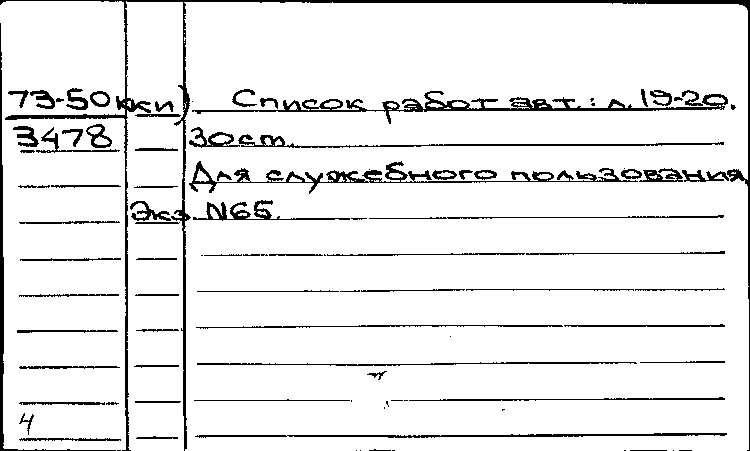 73-50кки) Список работ авт.: л. 19-20.
3478 30ст.
Для служебного пользования,
Экз. N65.
4